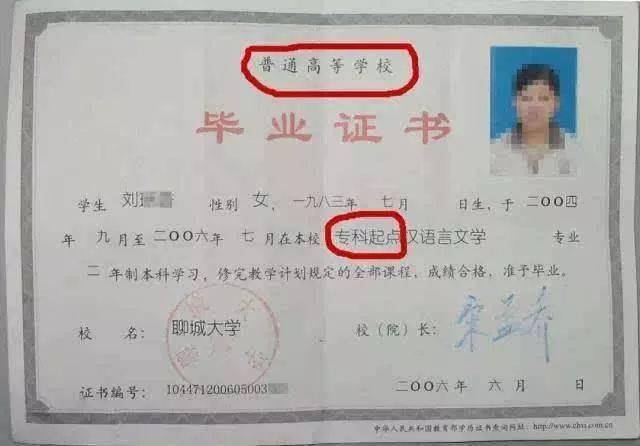 普通高等学校
毕业证书
学生 刘 性别 女, 一九八三年 七月 日生, 于 二〇〇四
年 九月至 二〇〇六年 七月在本校 专科起点汉语言文学 专业
二 年制本科学习, 修完教学计划规定的全部课程, 成绩合格, 准予毕业。
校 名: 聊城大学 校(院)长:
证书编号: 104471200605003 二〇〇六年 六月 日
中华人民共和国教育部学历证书查询网址: http://www.chsi.com.cn